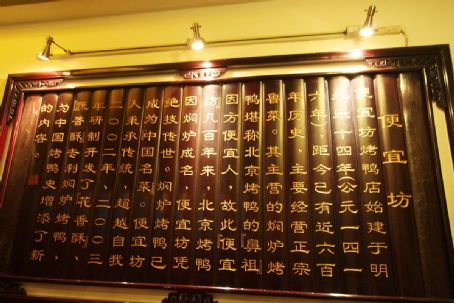 便宜坊
便宜坊烤鸭店始建于明
永乐十四年(公元一四一
六年)距今已有近六百
年历史,主要经营正宗
鲁菜。其主营的焖炉烤
鸭堪称北京烤鸭的鼻祖
因方便宜人,故此『便宜
坊』几百年来,北京烤鸭
因焖炉成名,便宜坊凭
绝技传世。焖炉烤鸭已
成为中国名菜。便宜坊
人秉承传统,超越自我
二〇〇二年、二〇〇三
年研制开发了花香酥、
蔬香酥专利焖炉烤鸭,
为中国烤鸭史增添了新
的内容。